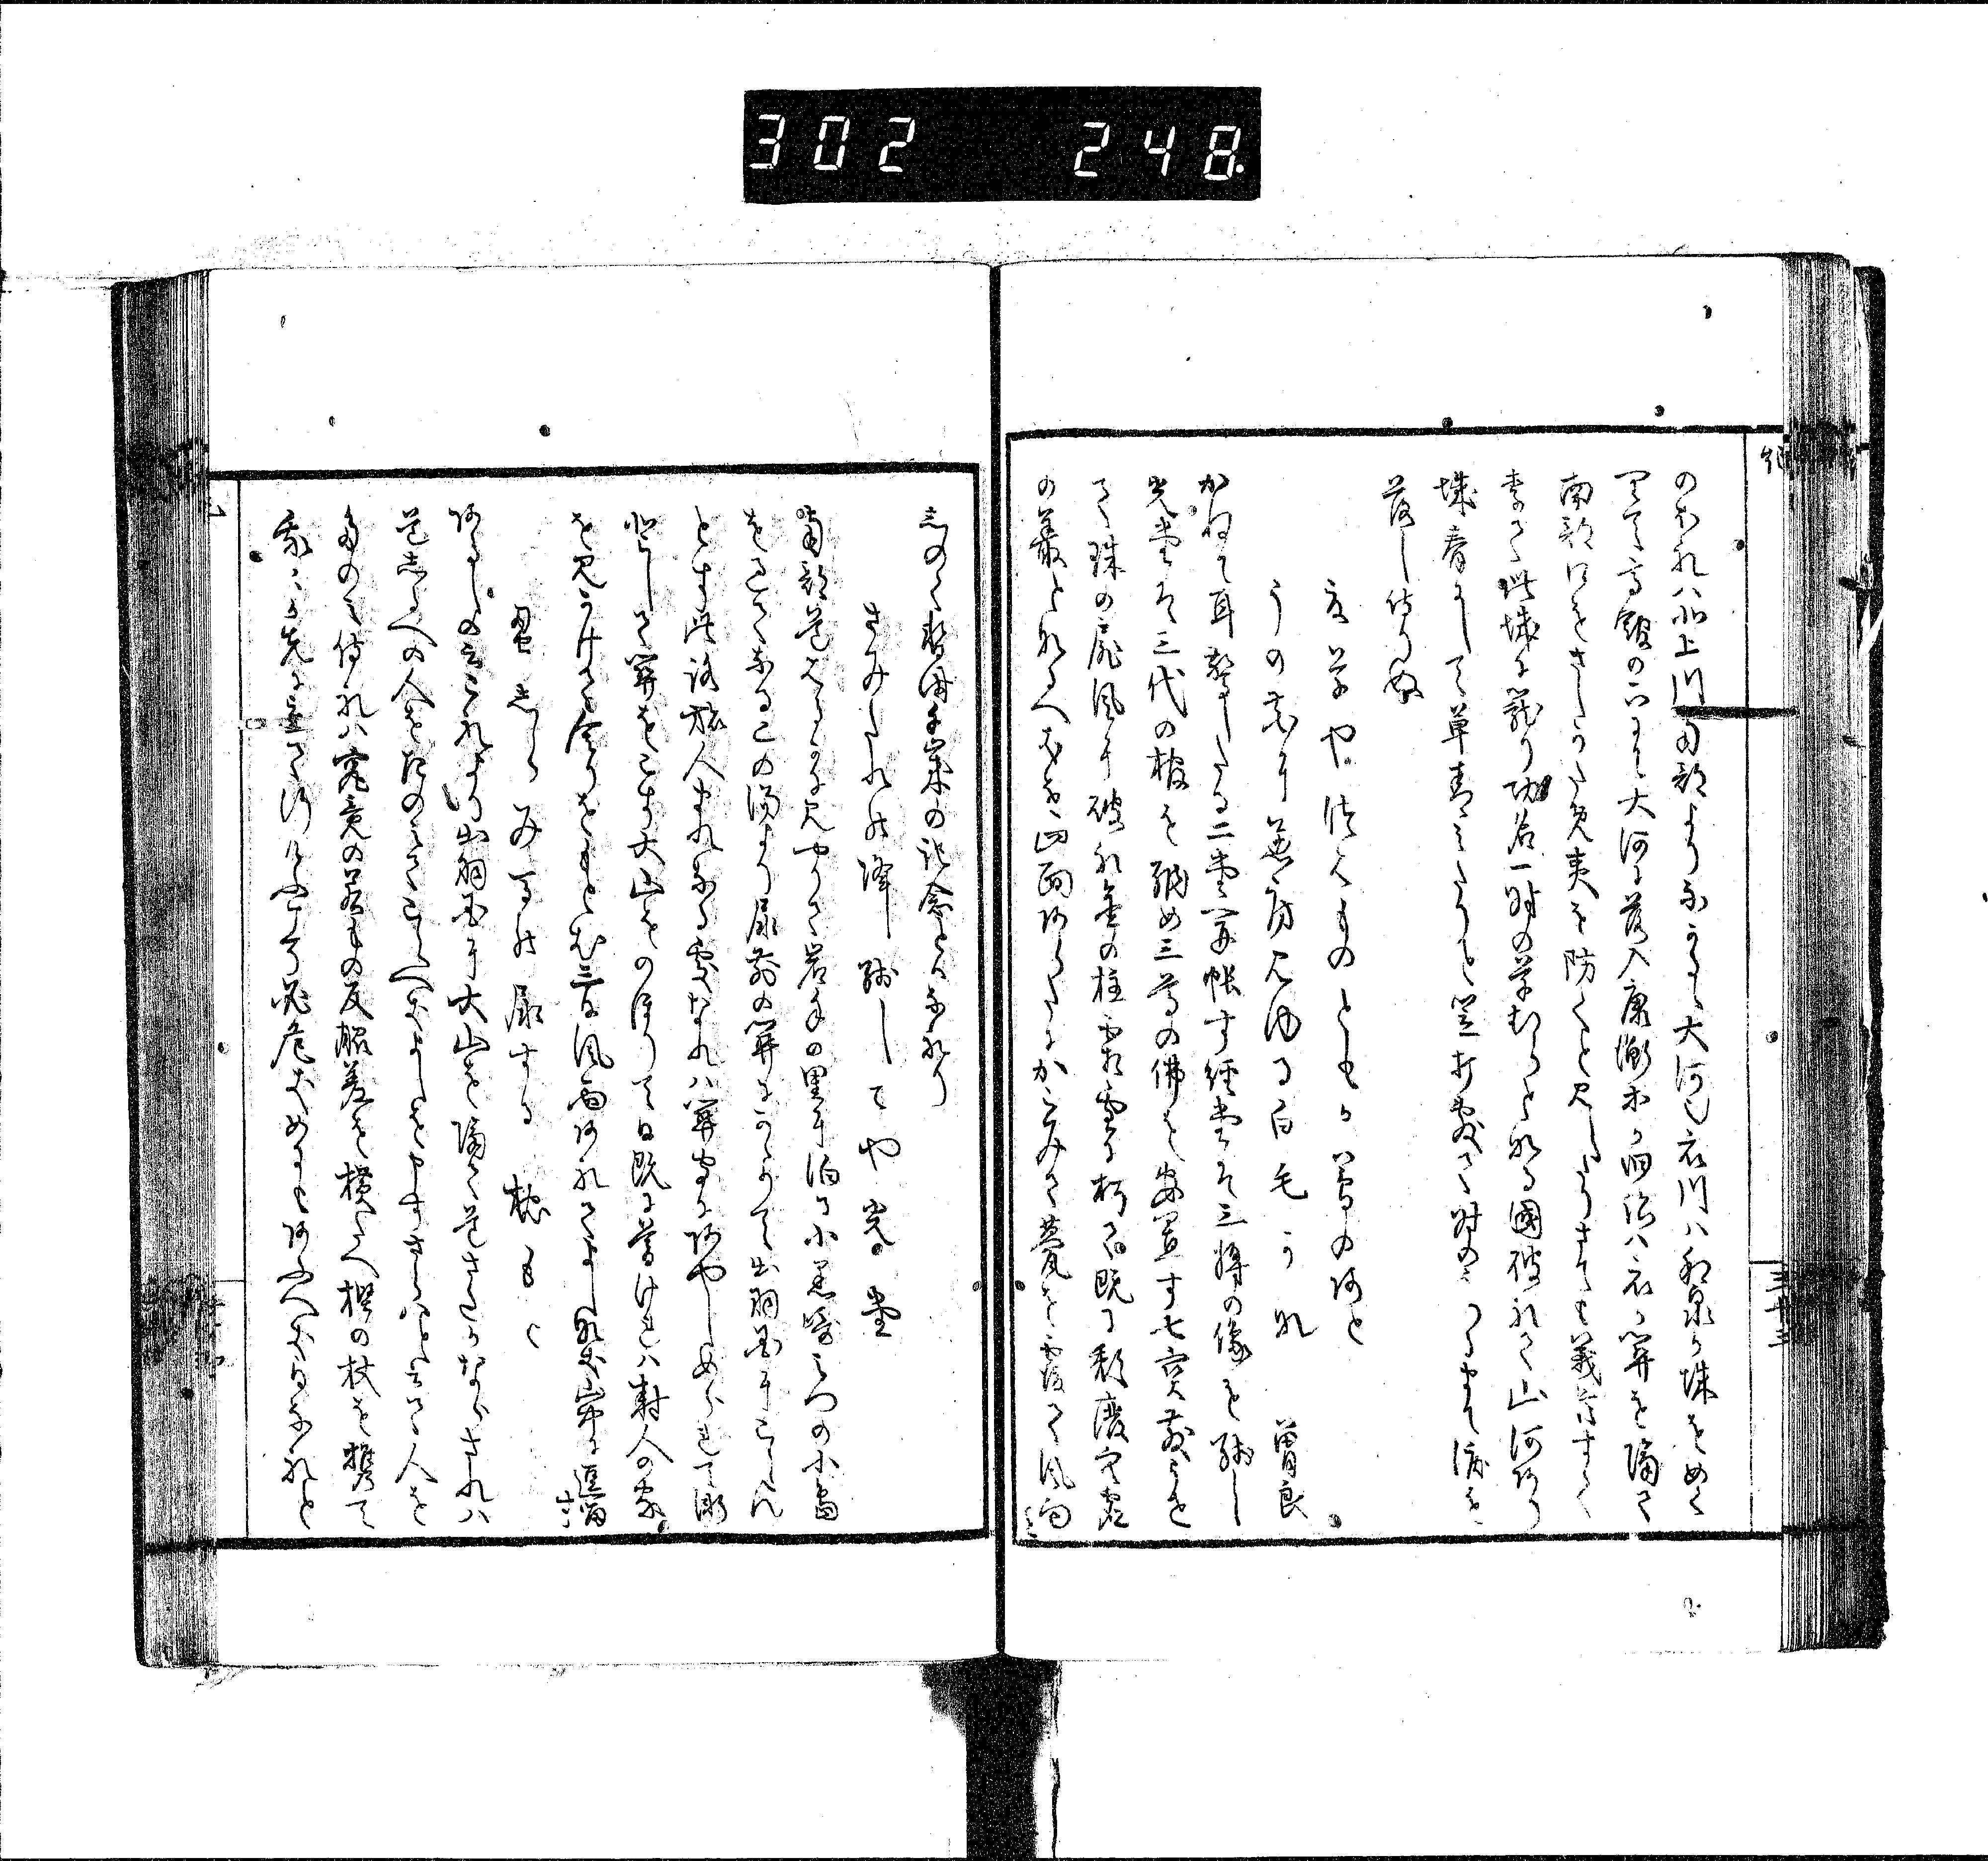 302 248.
のほれハ北上川南部より流るゝ大河也衣川ハ和泉か城をめく
りて高館の下にて大河に落入康衡等か旧跡ハ衣か関を隔て
南部口をさしかため夷を防くと見えたり偖も義臣すくつ
て此城に籠り功名一時の草むらとなる国破れて山河あり
城春にして草青みたりと笠打敷て時のうつるまて泪を
落し侍りぬ
夏草や兵ものともか夢のあと
うの花に兼房見ゆる白毛かな 曽良
かねて耳驚したる二堂開帳す経堂は三将の像を残し
光堂は三代の棺を納め三尊の佛を安置す七宝散うせ
て珠の扉風に破れ金の柱霜雪に朽て既に頽廃空虚
の叢となるへきを四面あらたにかこみて甍を覆て風雨を
しのく暫時千歳の記念とハなれり
さみたれの降残してや光堂
南部道はるかに見やりて岩手の里に泊る小黒崎みつの小嶋
を過てなるこの湯より尿前の関にかゝりて出羽国にこえん
とす此路旅人まれなる処なれハ関守にあやしめられて漸
にして関をこす大山をのほりて日既に暮けれハ封人の家
を見かけて舎りをもとむ三日風雨あれてよしなき山中に逗留す
蚤しらみ馬の尿する枕もと
あるしの云これより出羽国に大山を隔て道さたかならされハ
道しるへの人をたのみてこゆへきよしを申すさらハと云て人を
たのみ侍れハ究竟の若もの反脇差を横たへ樫の杖を携て
我々か先に立て行けふこそ必危きめにもあふへき日なれと
三十三